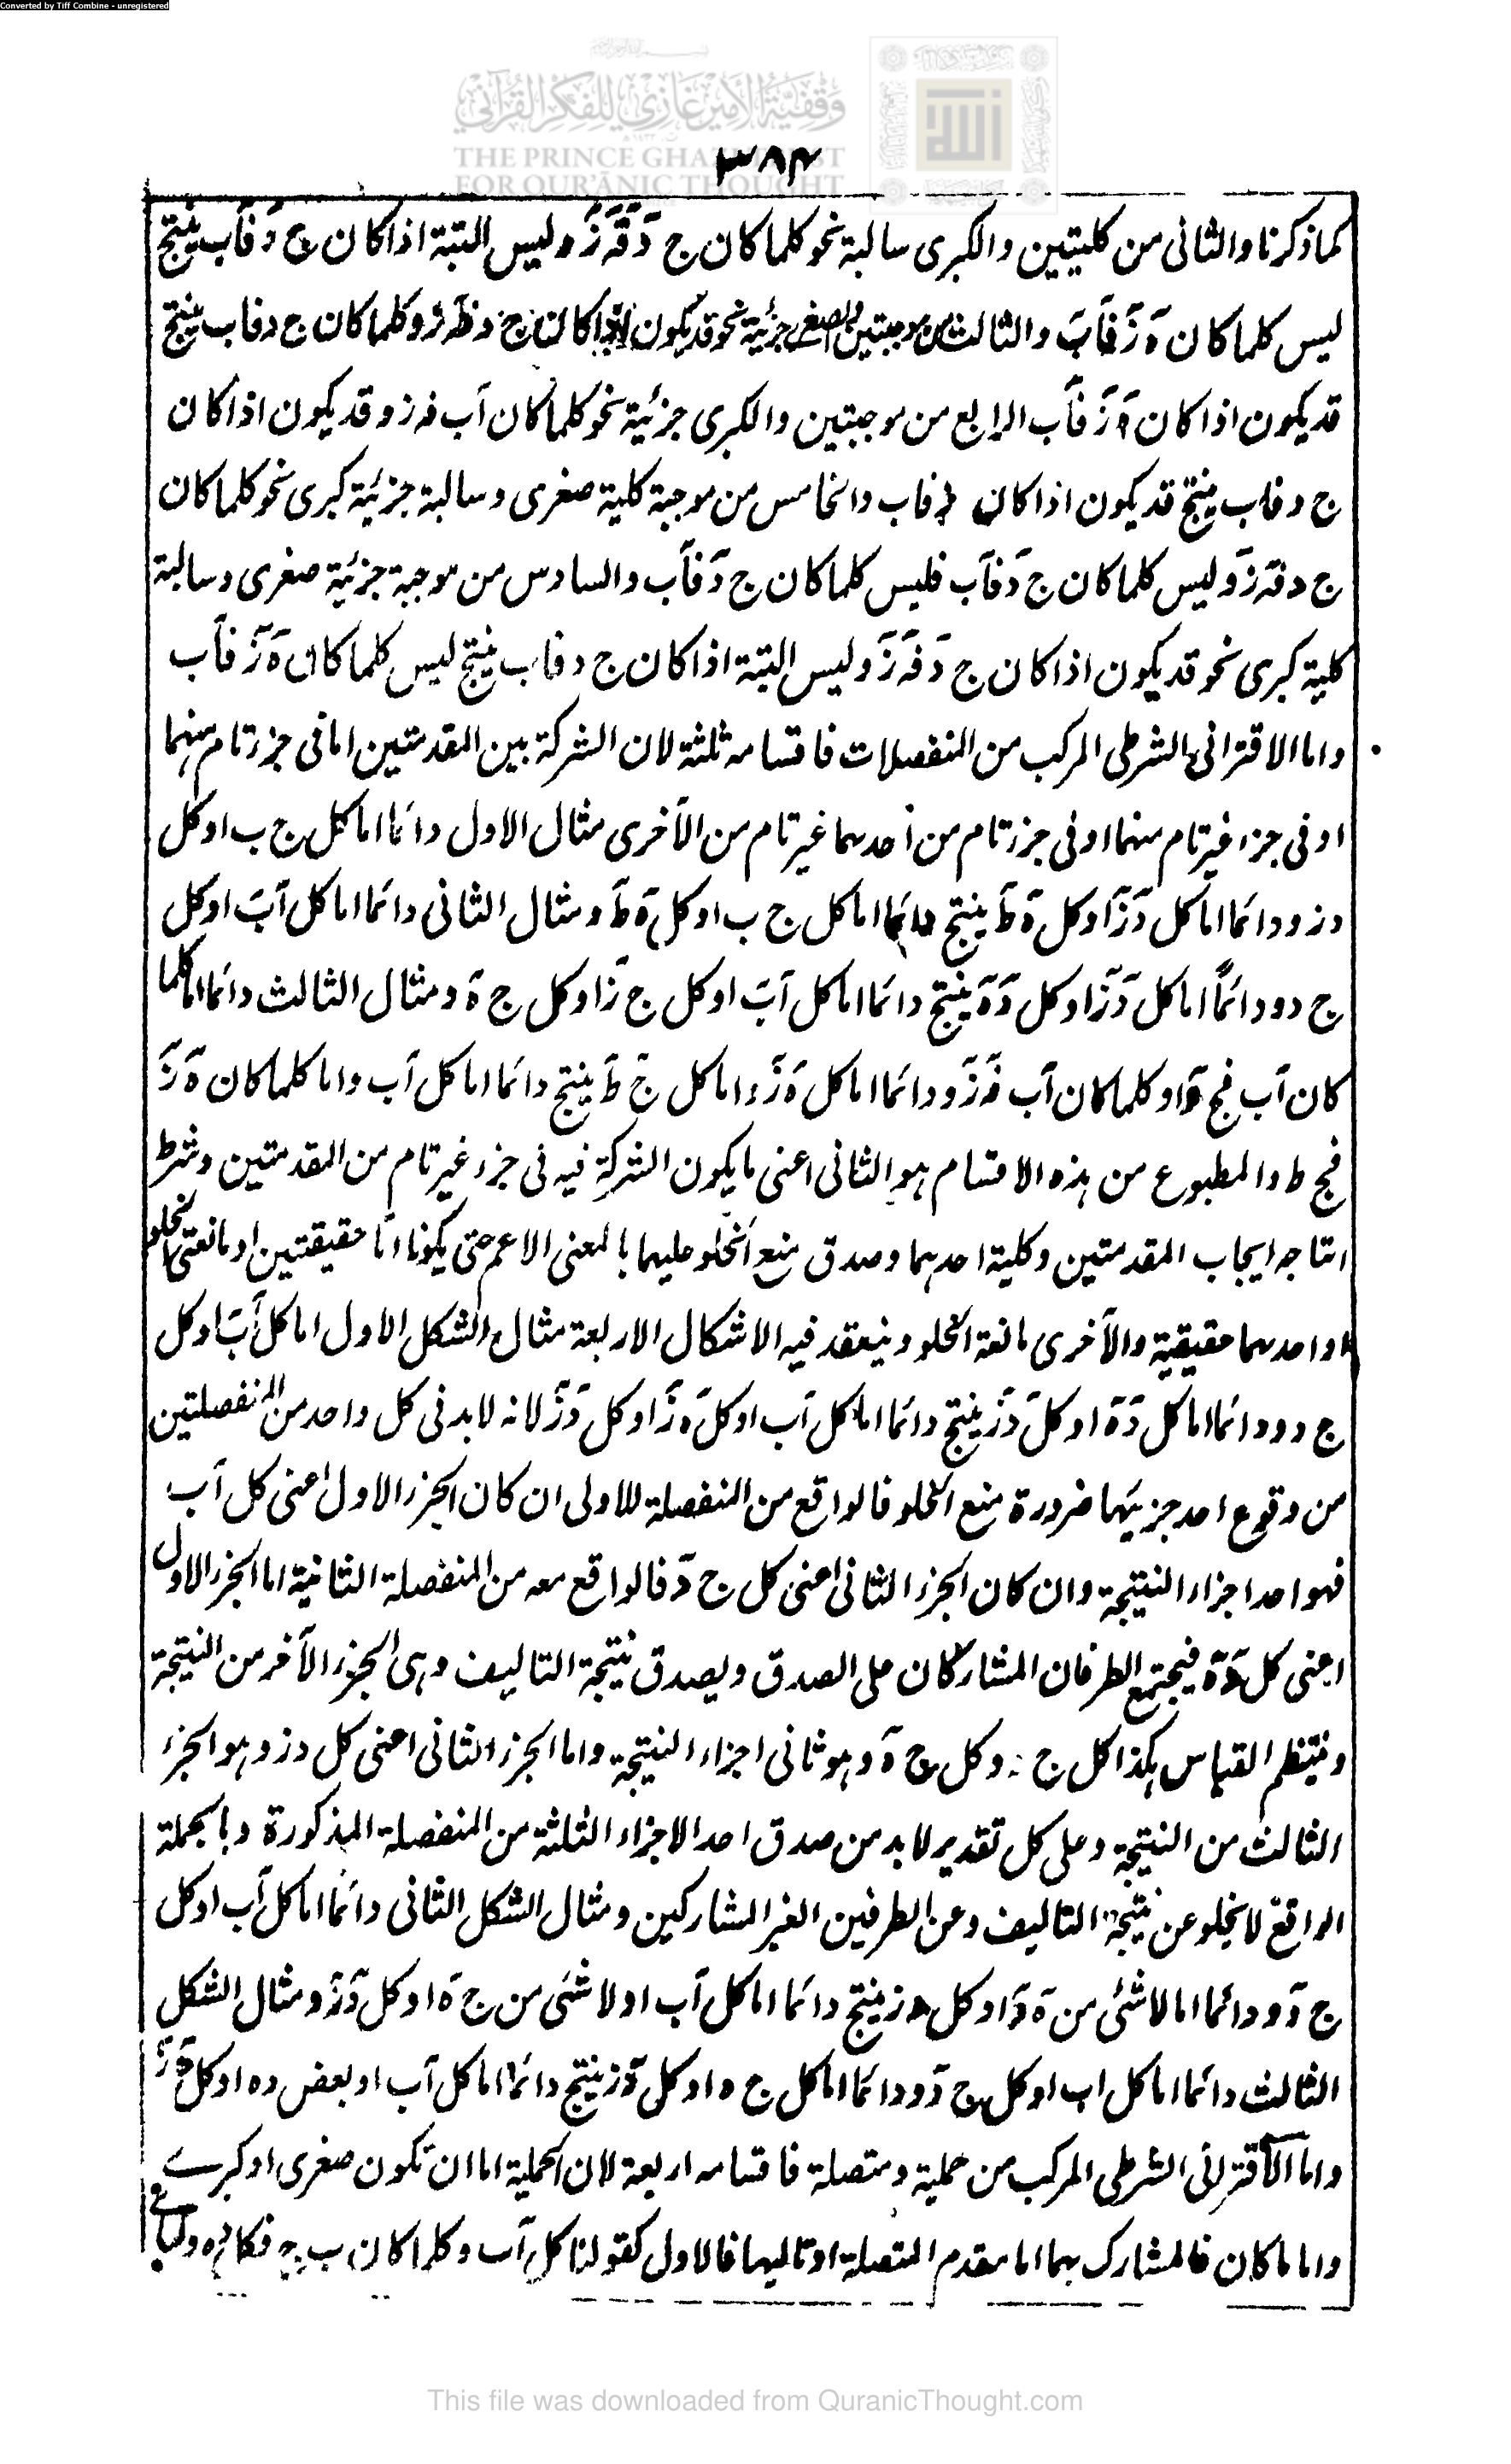 Converted by Tiff Combine - unregistered
وقفية الأمير غازي للفكر القرآني
THE PRINCE GHAZI TRUST
FOR QUR'ĀNIC THOUGHT
٣٨٤
كما ذكرنا والثانى من كليتين والكبرى سالبة نحو كلما كان ج د فه ز وليس البتة اذا كان ج د فاب ينتج
ليس كلما كان ه ز فاب والثالث من موجبتين والصغرى جزئية نحو قد يكون اذا كان ج د فه ز وكلما كان ج د فاب ينتج
قد يكون اذا كان ه ز فاب الرابع من موجبتين والكبرى جزئية نحو كلما كان اب فه ز وقد يكون اذا كان
ج د فاب ينتج قد يكون اذا كان فاب والخامس من موجبة كلية صغرى وسالبة جزئية كبرى نحو كلما كان
ج د فه ز وليس كلما كان ج د فاب فليس كلما كان ج د فاب والسادس من موجبة جزئية صغرى وسالبة
كلية كبرى نحو قد يكون اذا كان ج د فه ز وليس البتة اذا كان ج د فاب ينتج ليس كلما كان ه ز فاب
واما الاقترانى الشرطى المركب من المنفصلات فاقسامه ثلثة لان الشركة بين المقدمتين اما فى جزء تام منهما
او فى جزء غير تام منهما او فى جزء تام من احدهما غير تام من الآخرى مثال الاول دائما اما كل ج ب او كل
د ز ودائما اما كل د ز او كل ه ط ينتج دائما اما كل ج ب او كل ه ط ومثال الثانى دائما اما كل اب او كل
ج د ودائما اما كل د ز او كل د ه ينتج دائما اما كل اب او كل ج ز او كل ج ه ومثال الثالث دائما اما كلما
كان اب فج د او كلما كان اب فه ز ودائما اما كل ه ز واما كل ج ط ينتج دائما اما كل اب واما كلما كان ه ز
فج ط والمطبوع من هذه الاقسام هو الثانى اعنى ما يكون الشركة فيه فى جزء غير تام من المقدمتين وشرط
انتاجه ايجاب المقدمتين وكلية احدهما وصدق منع الخلو عليهما بالمعنى الاعم حتى يكونا اما حقيقتين او مانعتى الخلو
او احدهما حقيقية والآخرى مانعة الخلو وينعقد فيه الاشكال الاربعة مثال الشكل الاول اما كل اب او كل
ج د ودائما اما كل د ه او كل د ز ينتج دائما اما كل اب او كل ه ز او كل د ز لانه لابد فى كل واحد من المنفصلتين
من وقوع احد جزئيها ضرورة منع الخلو فالواقع من المنفصلة الاولى ان كان الجزء الاول اعنى كل اب
فهو احد اجزاء النتيجة وان كان الجزء الثانى اعنى كل ج د فالواقع معه من المنفصلة الثانية اما الجزء الاول
اعنى كل د ه فيجتمع الطرفان المشاركان على الصدق ويصدق نتيجة التاليف وهى الجزء الآخر من النتيجة
وينتظم القياس هكذا كل ج د وكل ج ه وهو ثانى اجزاء النتيجة واما الجزء الثانى اعنى كل د ز وهو الجزء
الثالث من النتيجة وعلى كل تقدير لابد من صدق احد الاجزاء الثلثة من المنفصلة المذكورة وبالجملة
الواقع لا يخلو عن نتيجة التاليف وعن الطرفين الغير المشاركين ومثال الشكل الثانى دائما اما كل اب او كل
ج د ودائما اما لا شئ من ه د او كل د ز ينتج دائما اما كل اب او لا شئ من ج ه او كل د ز ومثال الشكل
الثالث دائما اما كل اب او كل ج د ودائما اما كل ج ه او كل د ز ينتج دائما اما كل اب او بعض د ه او كل د ز
واما الاقترانى الشرطى المركب من حملية ومتصلة فاقسامه اربعة لان الحملية اما ان تكون صغرى او كبرى
واما ما كان فالمشارك بهما اما مقدم المتصلة او تاليها فالاول كقولنا كل اب وكلما كان ب ج فكل
This file was downloaded from QuranicThought.com